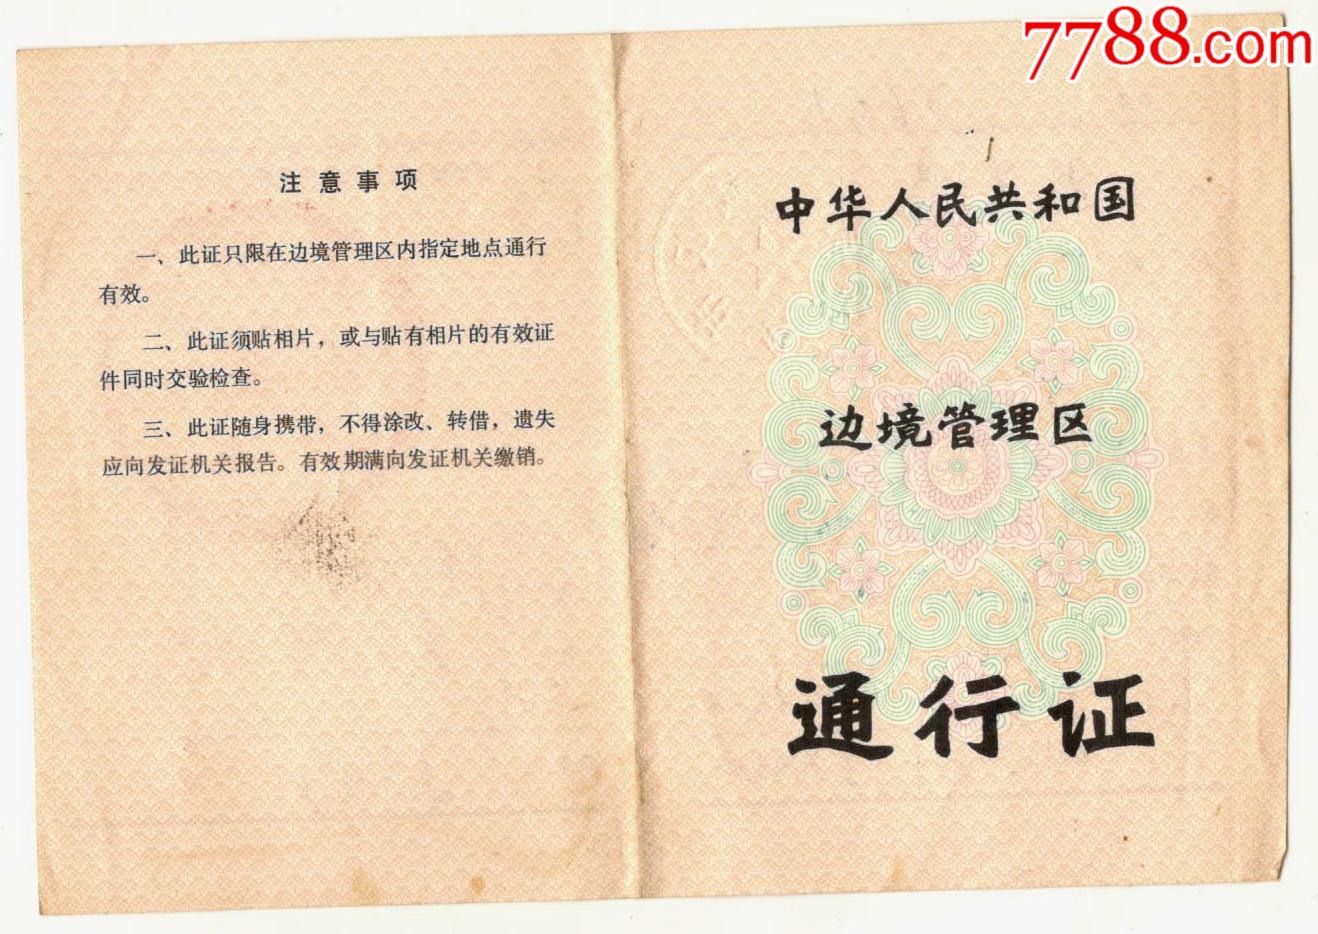 7788.com
注意事项
一、此证只限在边境管理区内指定地点通行
有效。
二、此证须贴相片，或与贴有相片的有效证
件同时交验检查。
三、此证随身携带，不得涂改、转借，遗失
应向发证机关报告。有效期满向发证机关缴销。
中华人民共和国
边境管理区
通行证